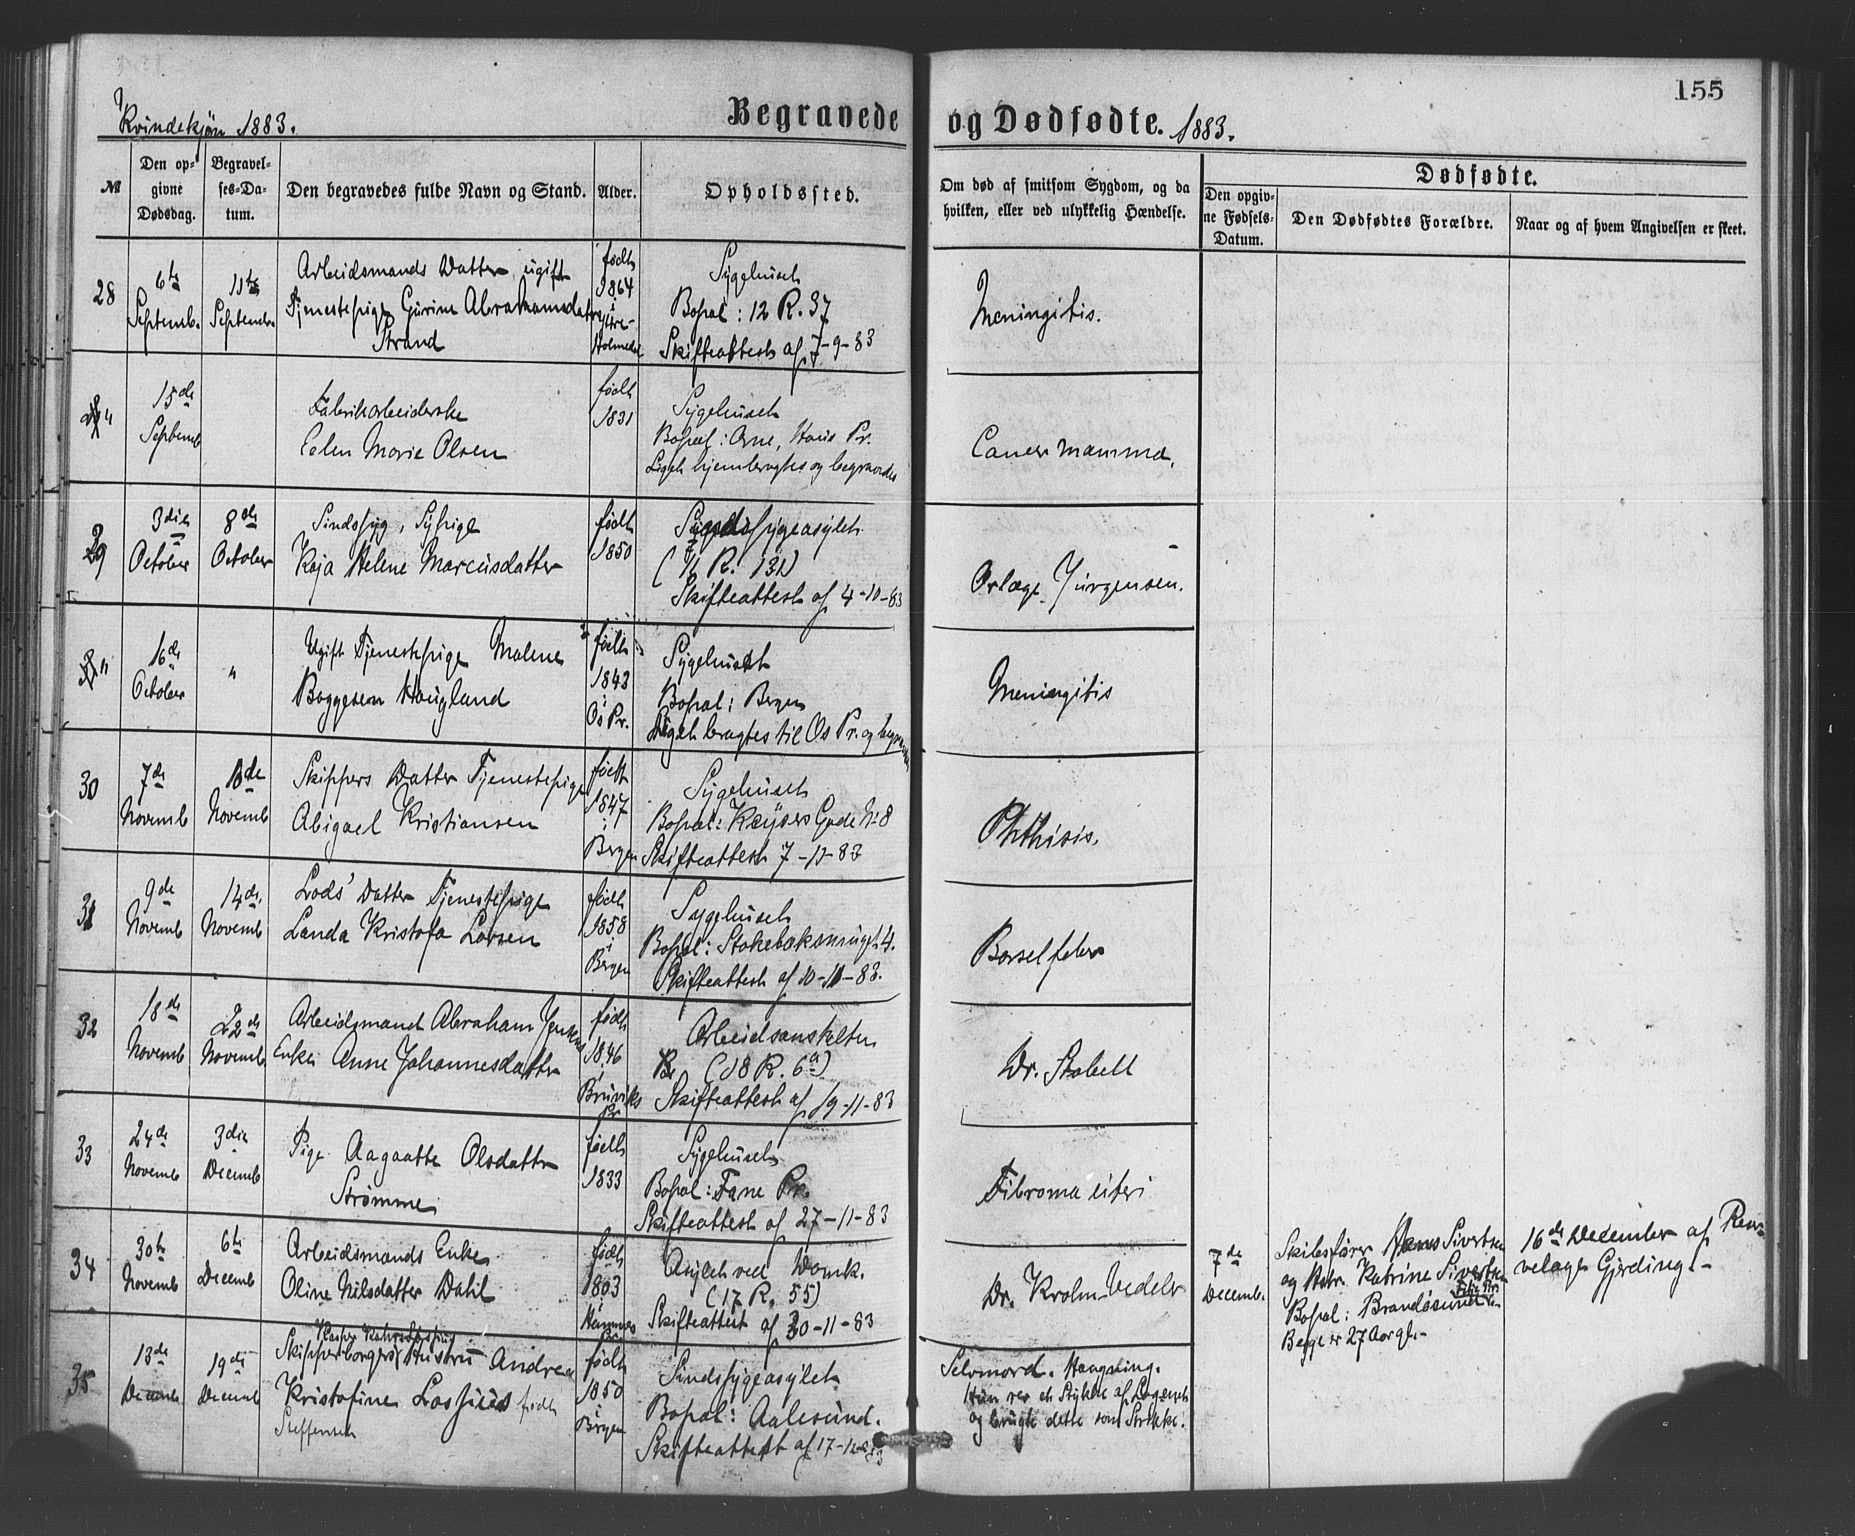 155
Kvindekjøn 1883.
Begravede og Dødfødte. 1883.
№
Den opgivne Dødsdag.
Begravelses-Datum.
Den begravedes fulde Navn og Stand.
Alder.
Opholdssted.
Om død af smitsom Sygdom, og da
hvilken, eller ved ulykkelig Hændelse.
Dødfødte.
Den opgivne Fødsels-Datum.
Den Dødfødtes Forældre.
Naar og af hvem Angivelsen er skeet.
28
6te
Septemb.
11te
Septemb.
Arbeidsmands Datter, ugift
Tjenestepige Gurine Abrahamsdatter
Strand
født
1864
i
Ytre-
Holmedal
Sygehuset
Bopæl: 12 R. 37
Skifteattest af 7-9-83
Meningitis.
"
15de
Septemb
Fabrikarbeiderske
Eelen Marie Olsen
født
1831
Sygehuset
Bopæl: Arne, Haus Pr.
Liget hjembragtes og begravedes
Cancer mamma.
29
3die
October
8de
October
Sindssyg, Sypige
Kaja Helene Marcusdatter
født
1850
Sindssygeasylet
R. 131)
Skifteattest af 4-10-83
Overlæge Jürgensen.
"
16de
October
"
Ugift Tjenestepige Malene
Baggesen Haugland
født
1843
i
Os Pr.
Sygehuset
Bopæl: Bergen
Liget bragtes til Os Pr. og
Meningitis
30
7de
Novemb
Novemb
Skippers Datter Tjenestepige
Abigael Kristiansen
født
1847
i
Bergen
Sygehuset
Bopæl: Keysers Gade № 8
Skifteattest 7-11-83
Phthisis.
31
9de
Novemb
14de
Novemb
Lods' Datter Tjenestepige
Landa Kristofa Larsen
født
1858
i
Bergen
Sygehuset
Bopæl: 4.
Skifteattest af 10-11-83.
Barselfeber
32
18de
Novemb
22de
Novemb
Arbeidsmand Abraham
Enke Anne Johannesdatter
født
1846
i
Bruviks
Pr
Arbeidsanstalten
(18 R. 6a)
Skifteattest af 19-11-83
Dr. Stabell
33
24de
Novemb
3die
Decemb
Pige Aagaatte Olsdatter
Strømme
født
1833
Sygehuset
Bopæl: Fane Pr.
Skifteattest af 27-11-83
Fibroma uteri
34
30te
Novemb
6te
Decemb
Arbeidsmands Enke
Oline Nilsdatter Dahl
født
1803
i
Hammer
Pr
Asylet ved Domk.
(17 R. 55)
Skifteattest af 30-11-83
Dr. Krohn Vedeler
7de
Decemb.
Skibsfører Hans Sivertsen
og Hstr. Katrine Sivertsen
Bopæl: Brandøsund
Begge er 27 Aar gl.
16de December af
Gjerding.
35
13de
Decemb
19de
Decemb
Skipperborger Hustru Andrea
Kristofine født
Steffensen
født
1850
i
Bergen
Sindssygeasylet
Bopæl: Aalesund.
Skifteattest af 17-12-83
Selvmord. Hængning.
Hun rev et Stykke af Lagenet
og brugte dette som Strikke.